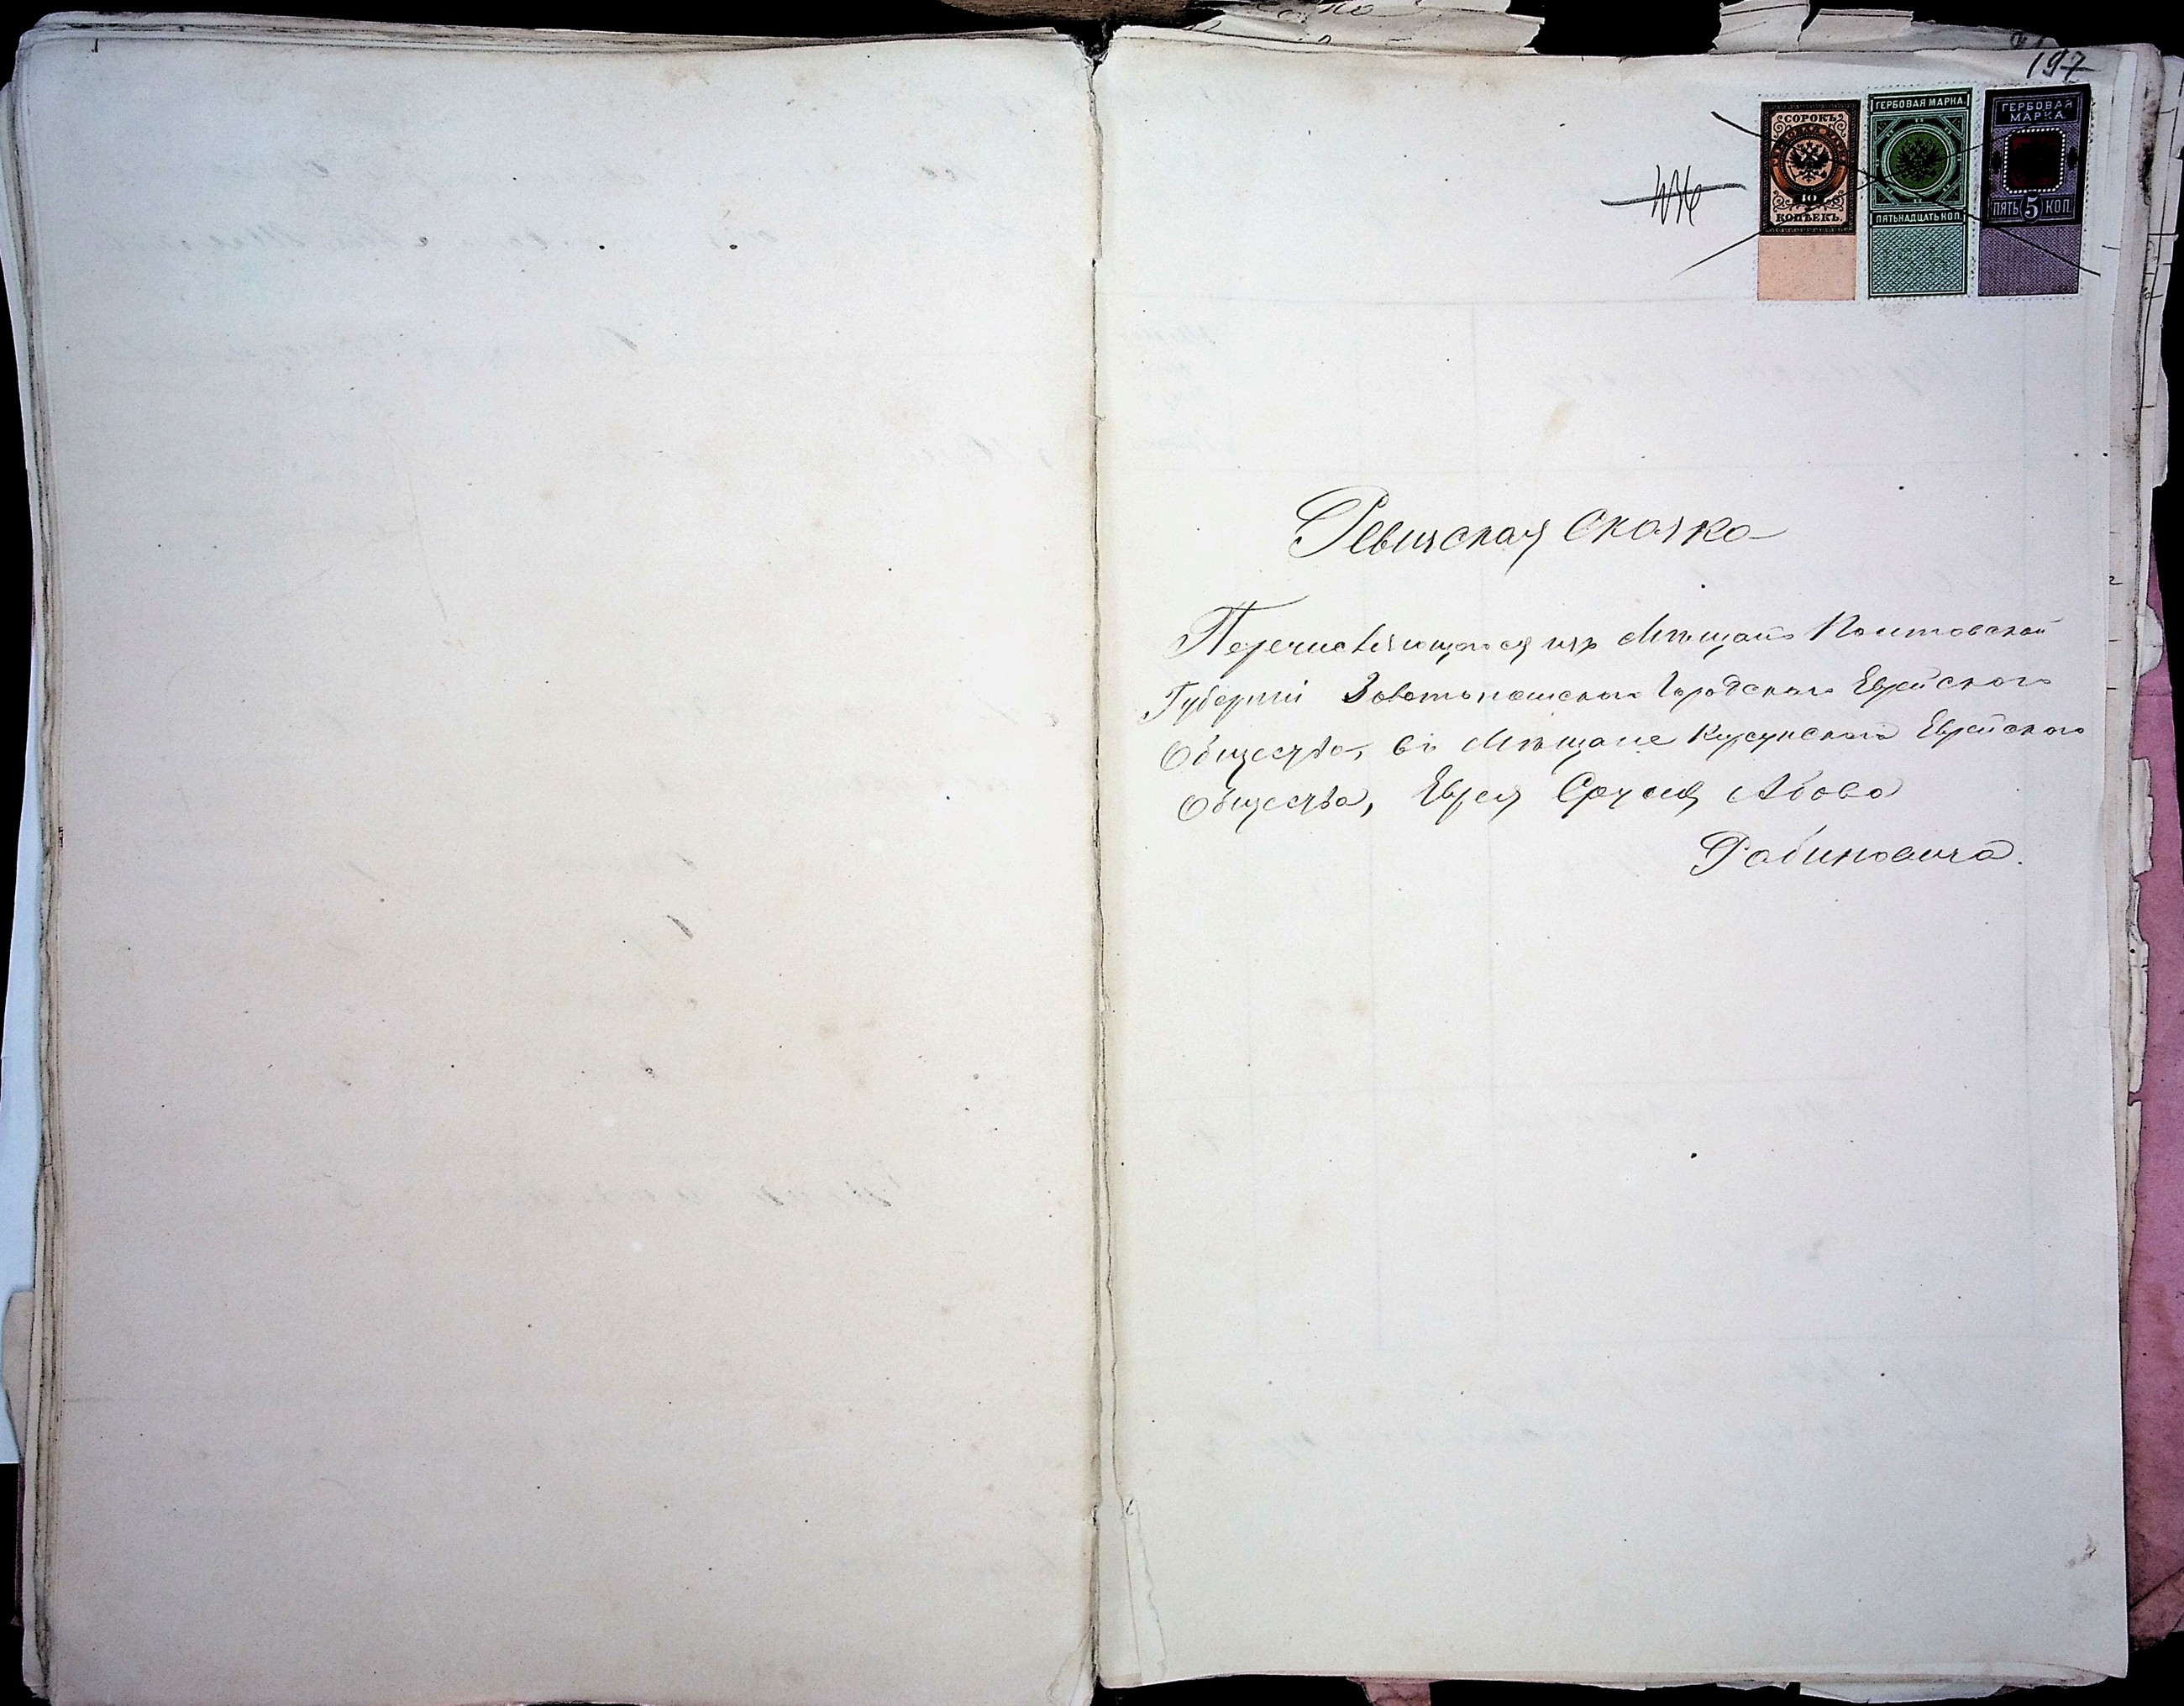 197
СОРОКЪ
40
КОПѢЕКЪ.
ГЕРБОВАЯ МАРКА.
ПЯТЬНАДЦАТЬ КОП.
ГЕРБОВАЯ
МАРКА
ПЯТЬ 5 КОП.
Ревизская Сказка
Перечисляющагося изъ Мѣщанъ Полтавской
Губерніи Золотоношскаго Городскаго Еврейскаго
Общества, въ Мѣщане Корсунскаго Еврейскаго
Общества, Еврея Сруля Абова
Рабиновича.